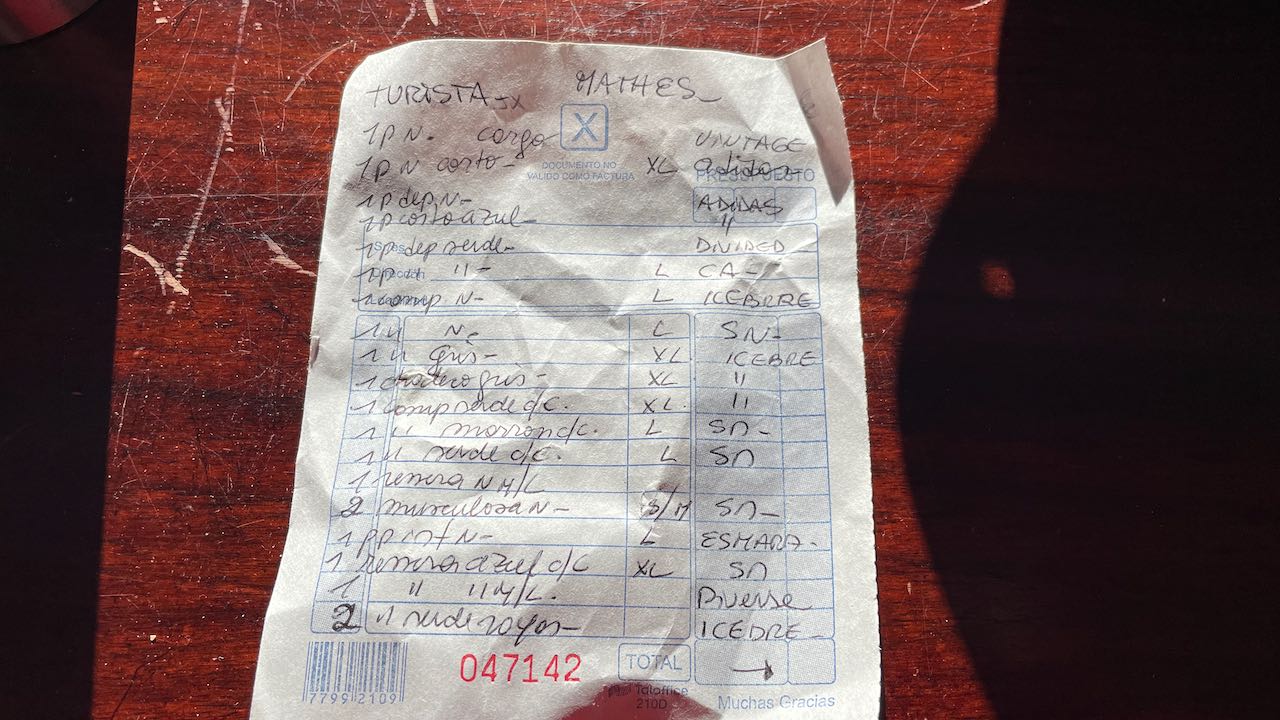 TURISTA MATHES
1 P N. cargo VINTAGE
X
1 P N corto - XL adidas
DOCUMENTO NO
VALIDO COMO FACTURA
PRESUPUESTO
1 P dep N - ADIDAS
1 P corto azul - "
1 P dep verde - DIVIDED
1 P " - L CA -
1 comp N - L ICEBRRE
1 " N - L SN -
1 " gris - XL ICEBRE
1 gris - XL "
1 comp verde d/c. XL. "
1 " marron d/c. L SN -
1 " verde d/c. L SN
1 remera N M/L
2 musculosa N - S/M SN -
1 P P int N - L ESMARA.
1 remera azul d/c XL SN
1 " " M/L. Diverse
2 " verde rayas - ICEDRE -
047142
TOTAL →
7799 2109
Taloffice
210D
Muchas Gracias